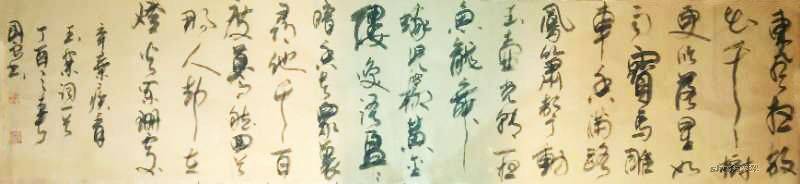 東風夜放
花千樹
更吹落星如
雨寶馬雕
車香滿路
鳳簫聲動
玉壺光轉一夜
魚龍舞
蛾兒雪柳黃金
縷笑語盈〻
暗香去眾裏
尋他千百
度驀然回首
那人却在
燈火闌珊處
辛棄疾青
玉案词一首
丁酉之春月